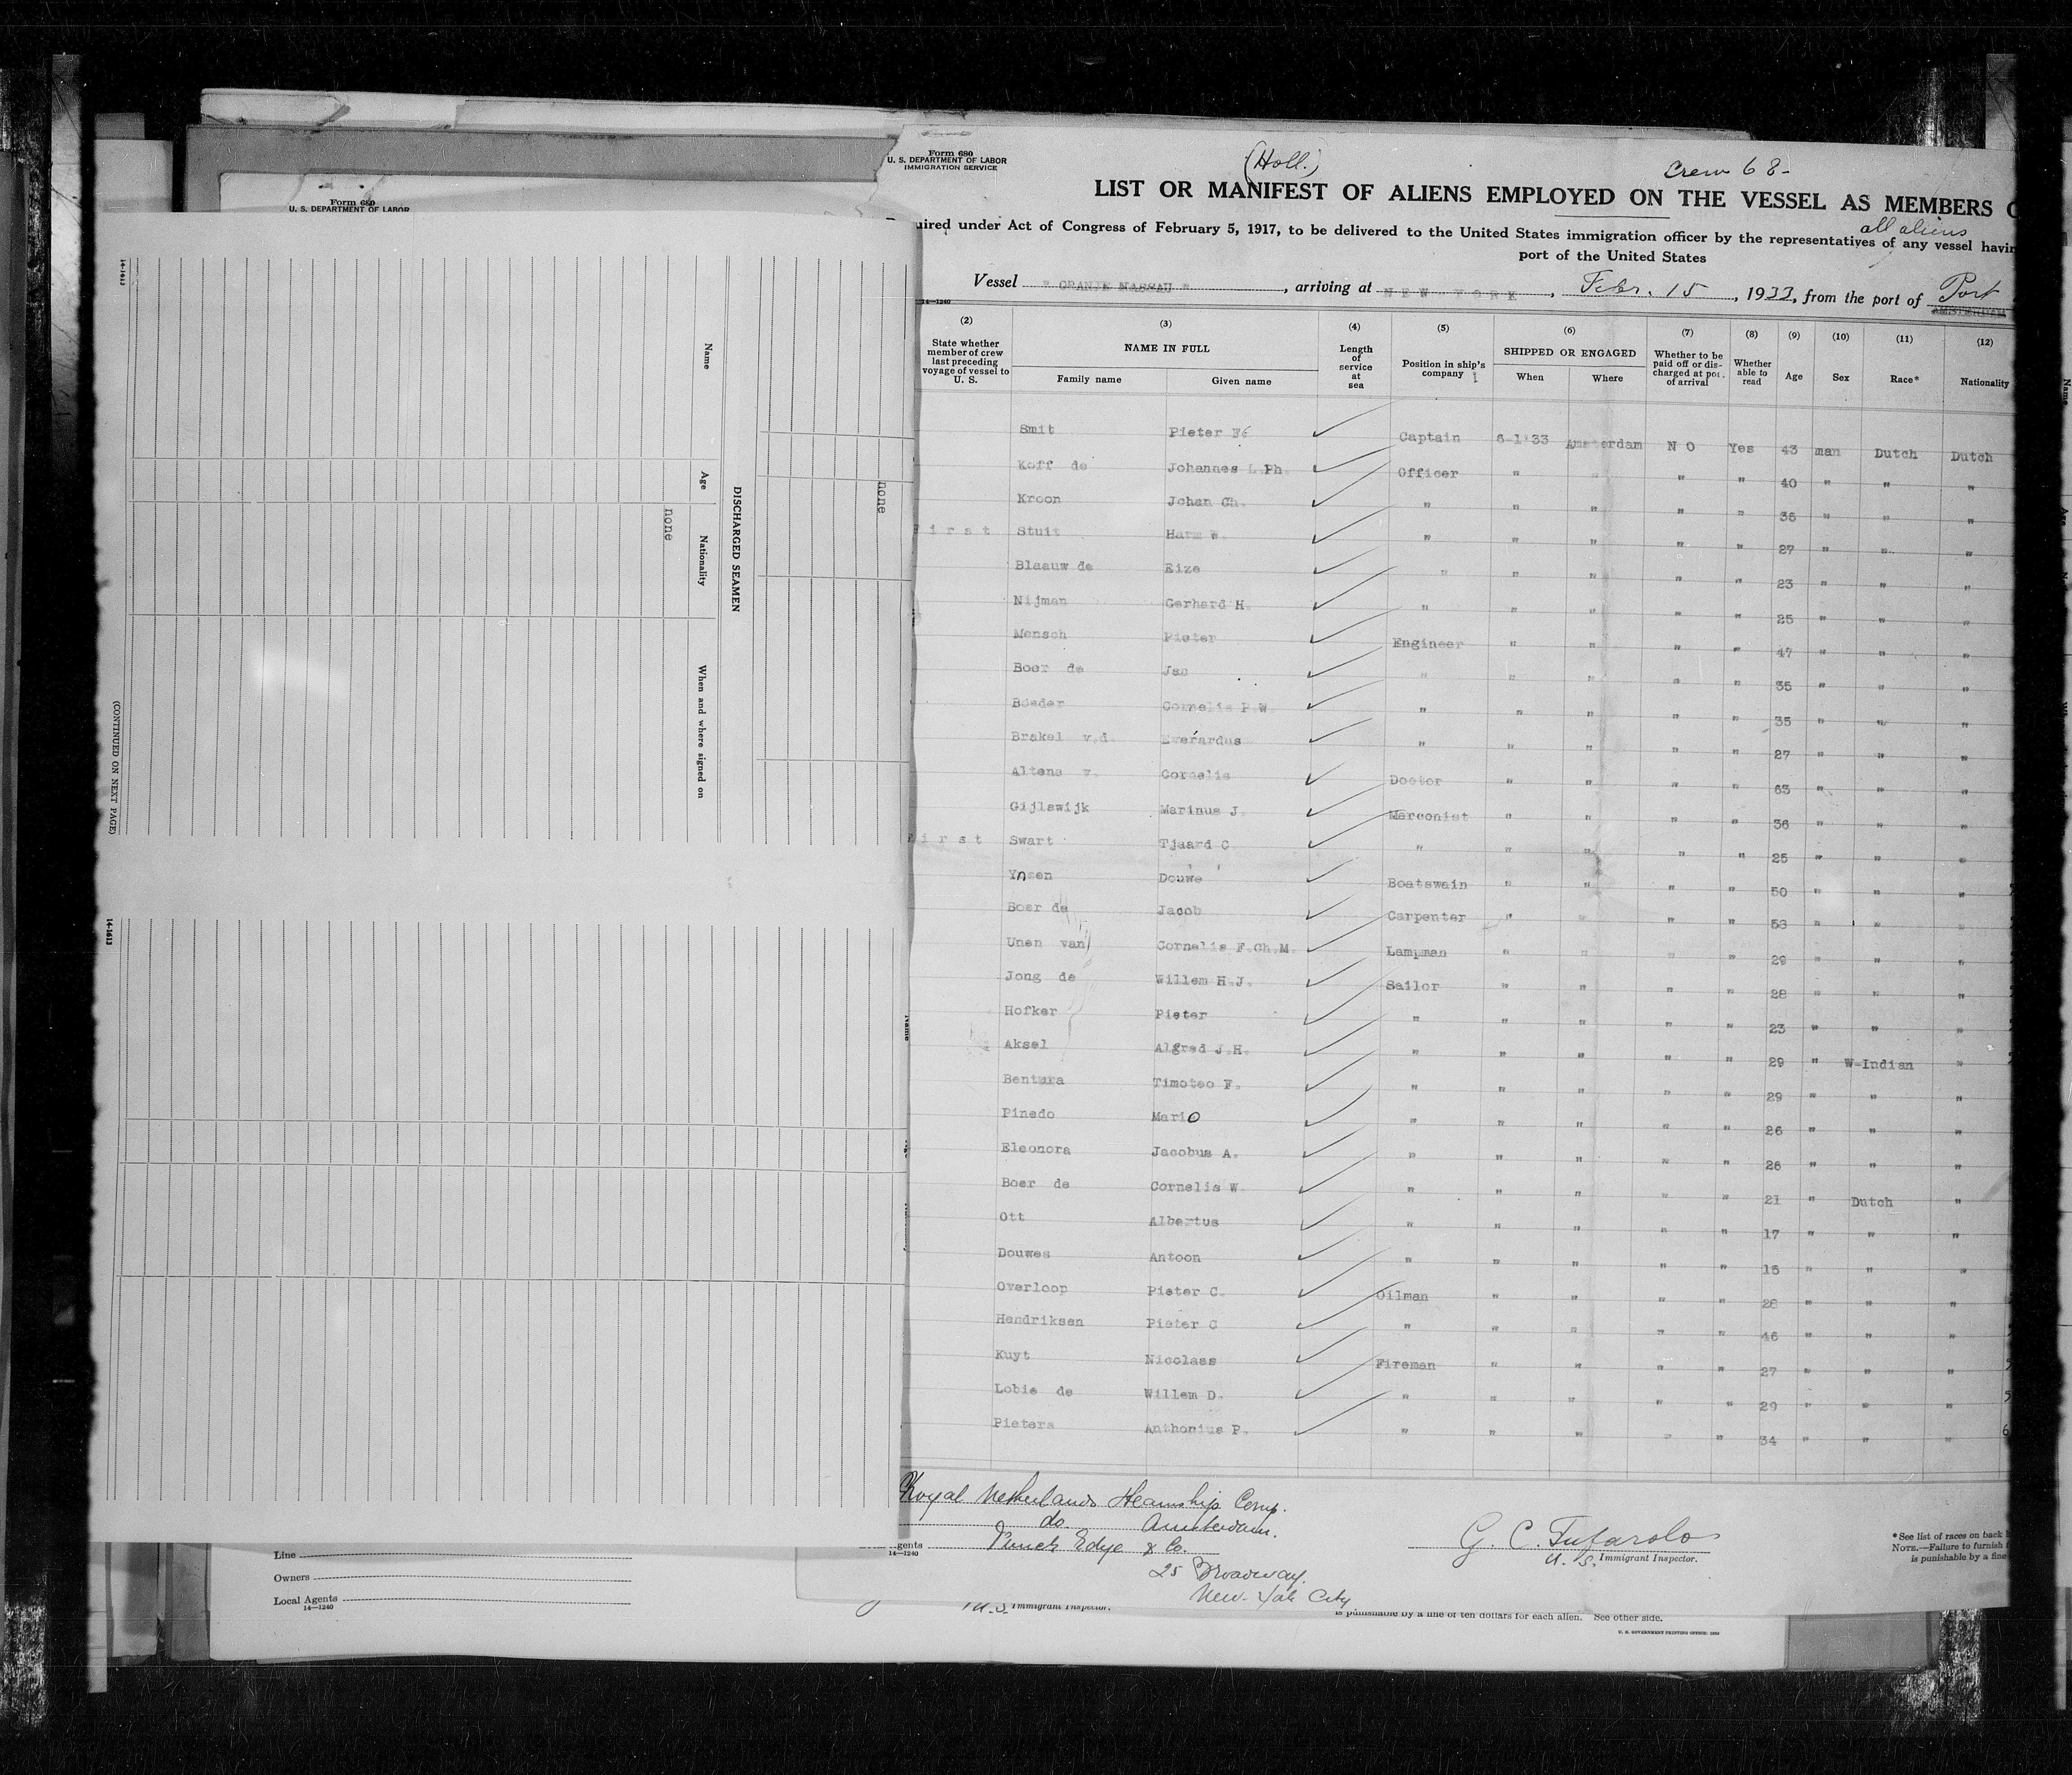 Form 680
U. S. DEPARTMENT OF LABOR
IMMIGRATION SERVICE
(Holl.)
Crew 68-
LIST OR MANIFEST OF ALIENS EMPLOYED ON THE VESSEL AS MEMBERS
all aliens
uired under Act of Congress of February 5, 1917, to be delivered to the United States immigration officer by the representatives of any vessel havin
port of the United States
Vessel " ORANJE NASSAU " , arriving at NEW-YORK , Febr. 15 , 1933, from the port of Port
AMSTERDAM
14—1240
(2) (3) (4) (5) (6) (7) (8) (9) (10) (11) (12)
State whether member of crew last preceding voyage of vessel to U. S. NAME IN FULL Family name Given name Length of service at sea Position in ship's company SHIPPED OR ENGAGED When Where Whether to be paid off or discharged at port of arrival Whether able to read Age Sex Race* Nationality
Smit Pieter Fé Captain 6-1'33 Amsterdam NO Yes 43 man Dutch Dutch
Koff de Johannes L.Ph. Officer " " " " 40 " " "
Kroon Johan Ch. " " " " " 36 " " "
First Stuit Harm W. " " " " " 27 " " "
Blaauw de Eize " " " " " 23 " " "
Nijman Gerhard H. " " " " " 25 " " "
Mensch Pieter Engineer " " " " 47 " " "
Boer de Jan " " " " " 35 " " "
Boeder Cornelis P.W. " " " " " 35 " " "
Brakel v.d. Everardus " " " " " 27 " " "
Altena v. Cornelis Doctor " " " " 63 " " "
Gijlswijk Marinus J. Marconist " " " " 36 " " "
First Swart Tjaard C " " " " " 25 " " "
Ynsen Douwe Boatswain " " " " 50 " " "
Boer de Jacob Carpenter " " " " 53 " " "
Unen van Cornelis F.Ch.M. Lampman " " " " 29 " " "
Jong de Willem H.J. Sailor " " " " 28 " " "
Hofker Pieter " " " " " 23 " " "
Aksel Algred J.H. " " " " " 29 " W-Indian "
Bentura Timoteo F. " " " " " 29 " " "
Pinedo Mario " " " " " 26 " " "
Eleonora Jacobus A. " " " " " 26 " " "
Boer de Cornelis W. " " " " " 21 " Dutch "
Ott Albertus " " " " " 17 " " "
Douwes Antoon " " " " " 15 " " "
Overloop Pieter C. Oilman " " " " 28 " " "
Hendriksen Pieter C " " " " " 46 " " "
Kuyt Nicolaas Fireman " " " " 27 " " "
Lobie de Willem D. " " " " " 29 " " "
Pieters Anthonius P. " " " " " 34 " " "
Royal Netherlands Steamship Comp.
do. Amsterdam.
gents Funch Edye & Co.
14—1240
25 Broadway.
New-York City
G. C. Tufarolo
U. S. Immigrant Inspector.
*See list of races on back
NOTE.—Failure to furnish
is punishable by a fine
Form 680
U. S. DEPARTMENT OF LABOR
14-1613
Name
Age
Nationality
When and where signed on
DISCHARGED SEAMEN
none
none
(CONTINUED ON NEXT PAGE)
14-1613
Line
Owners
Local Agents
14—1240
U.S. Immigrant Inspector.
is punishable by a fine of ten dollars for each alien. See other side.
U. S. GOVERNMENT PRINTING OFFICE: